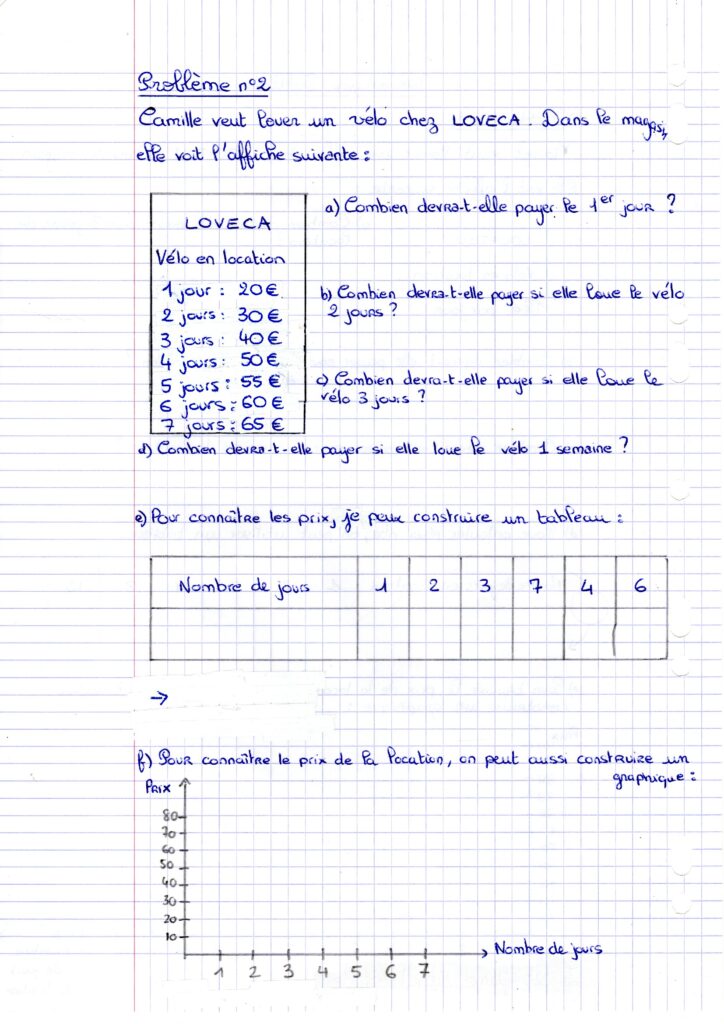 Problème n°2
Camille veut louer un vélo chez LOVECA. Dans le magasin,
elle voit l'affiche suivante :
LOVECA
Vélo en location
1 jour : 20 €
2 jours : 30 €
3 jours : 40 €
4 jours : 50 €
5 jours : 55 €
6 jours : 60 €
7 jours : 65 €
a) Combien devra-t-elle payer le 1er jour ?
b) Combien devra-t-elle payer si elle loue le vélo
2 jours ?
c) Combien devra-t-elle payer si elle loue le
vélo 3 jours ?
d) Combien devra-t-elle payer si elle loue le vélo 1 semaine ?
e) Pour connaître les prix, je peux construire un tableau :
Nombre de jours 1 2 3 7 4 6
→
f) Pour connaître le prix de la location, on peut aussi construire un
graphique :
Prix
80
70
60
50
40
30
20
10
Nombre de jours
1 2 3 4 5 6 7